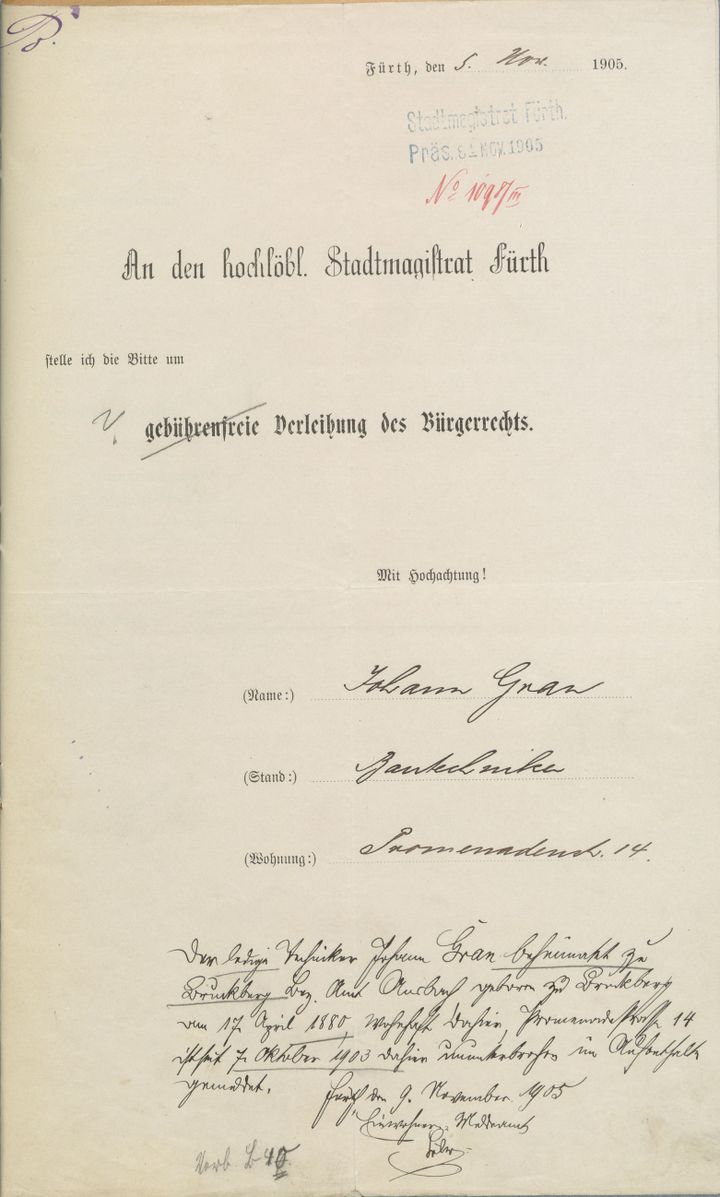 B.
Fürth, den 5. Nov. 1905.
Stadtmagistrat Fürth.
Präs. NOV. 1905
No
An den hochlöbl. Stadtmagistrat Fürth
stelle ich die Bitte um
gebührenfreie Verleihung des Bürgerrechts.
Mit Hochachtung!
(Name:) Johann Grau
(Stand:) Bautechniker
(Wohnung:) Promenadenstr. 14.
Der ledige Techniker Johann Grau beheimatet zu
Bruckberg Bez. Amt Ansbach geboren zu Bruckberg
am 17. April 1880, wohnhaft dahier, Promenadestraße 14
ist seit 7. Oktober 1903 dahier ununterbrochen im Aufenthalte
gemeldet.
Fürth den 9. November 1905
Einwohner-Meldeamt